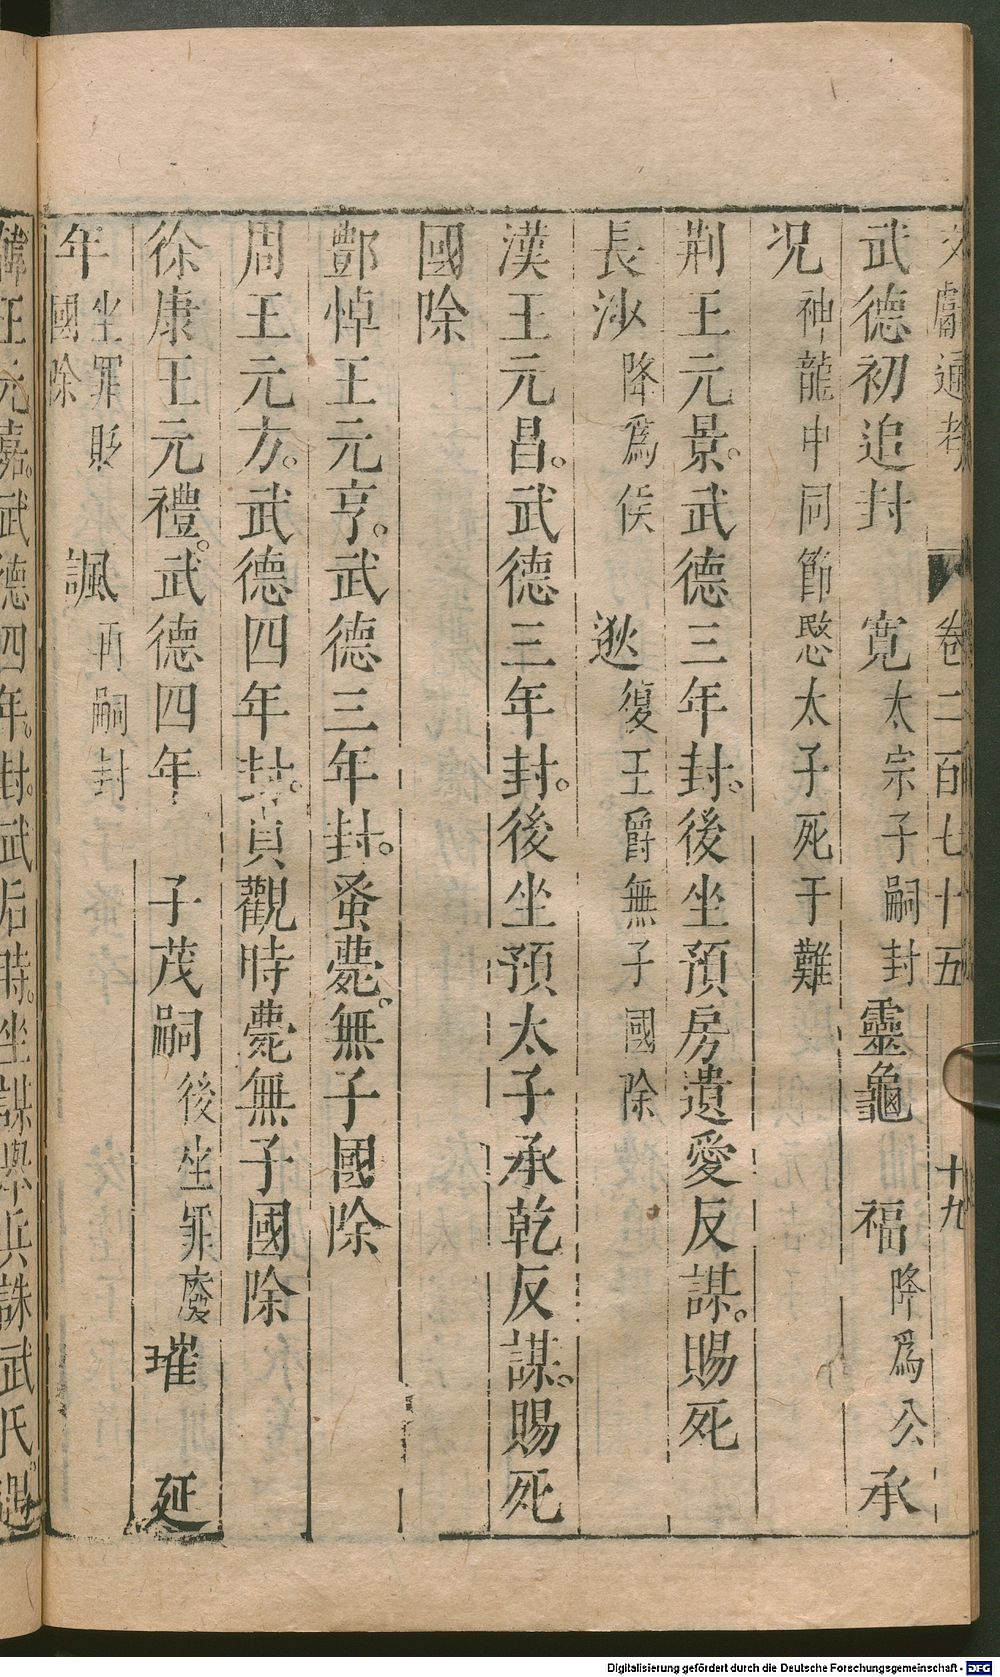 文獻通考 卷二百七十五 十九
武德初追封 寬太宗子嗣封靈龜 福降為公承
况神龍中同節愍太子死于難
荆王元景。武德三年封。後坐預房遺愛反謀。賜死
長沙降為侯 逖復王爵無子國除
漢王元昌。武德三年封。後坐預太子承乾反謀。賜死
國除
酆悼王元亨。武德三年封。蚤薨。無子國除
周王元方。武德四年封。貞觀時薨無子國除
徐康王元禮。武德四年 子茂嗣後坐罪廢 璀 延
年坐罪貶國除 諷再嗣封
韓王元嘉。武德四年。封。武后時。坐謀舉兵誅武氏。
Digitalisierung gefördert durch die Deutsche Forschungsgemeinschaft - DFG